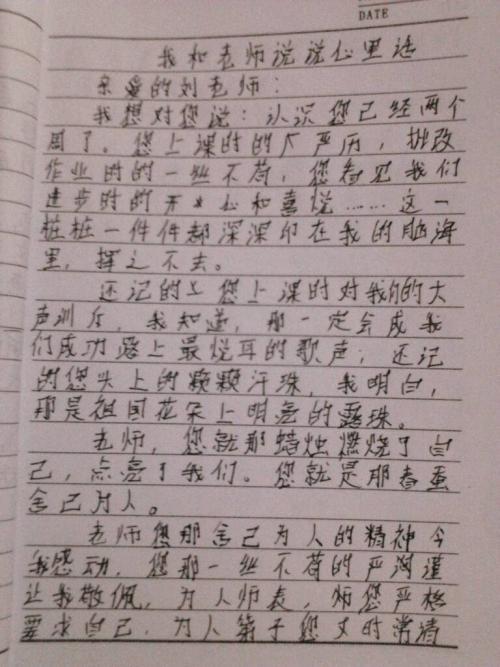 DATE
我和老师说说心里话
亲爱的刘老师：
我想对您说：认识您已经两个
周了。您上课时的厂严厉，批改
作业时的一丝不苟，您看见我们
进步时的开心和喜悦……这一
桩桩一件件都深深印在我的脑海
里，挥之不去。
还记的上您上课时对我们的大
声训斥，我知道，那一定会成我
们成功路上最悦耳的歌声；还记
的您头上的颗颗汗珠，我明白，
那是祖国花朵上明亮的露珠。
老师，您就那蜡烛燃烧了自
己，点亮了我们。您就是那春蚕
舍己为人。
老师您那舍己为人的精神令
我感动，您那一丝不苟的严谨
让我敬佩，为人师表，师您严格
要求自己，为人弟子您又时常清